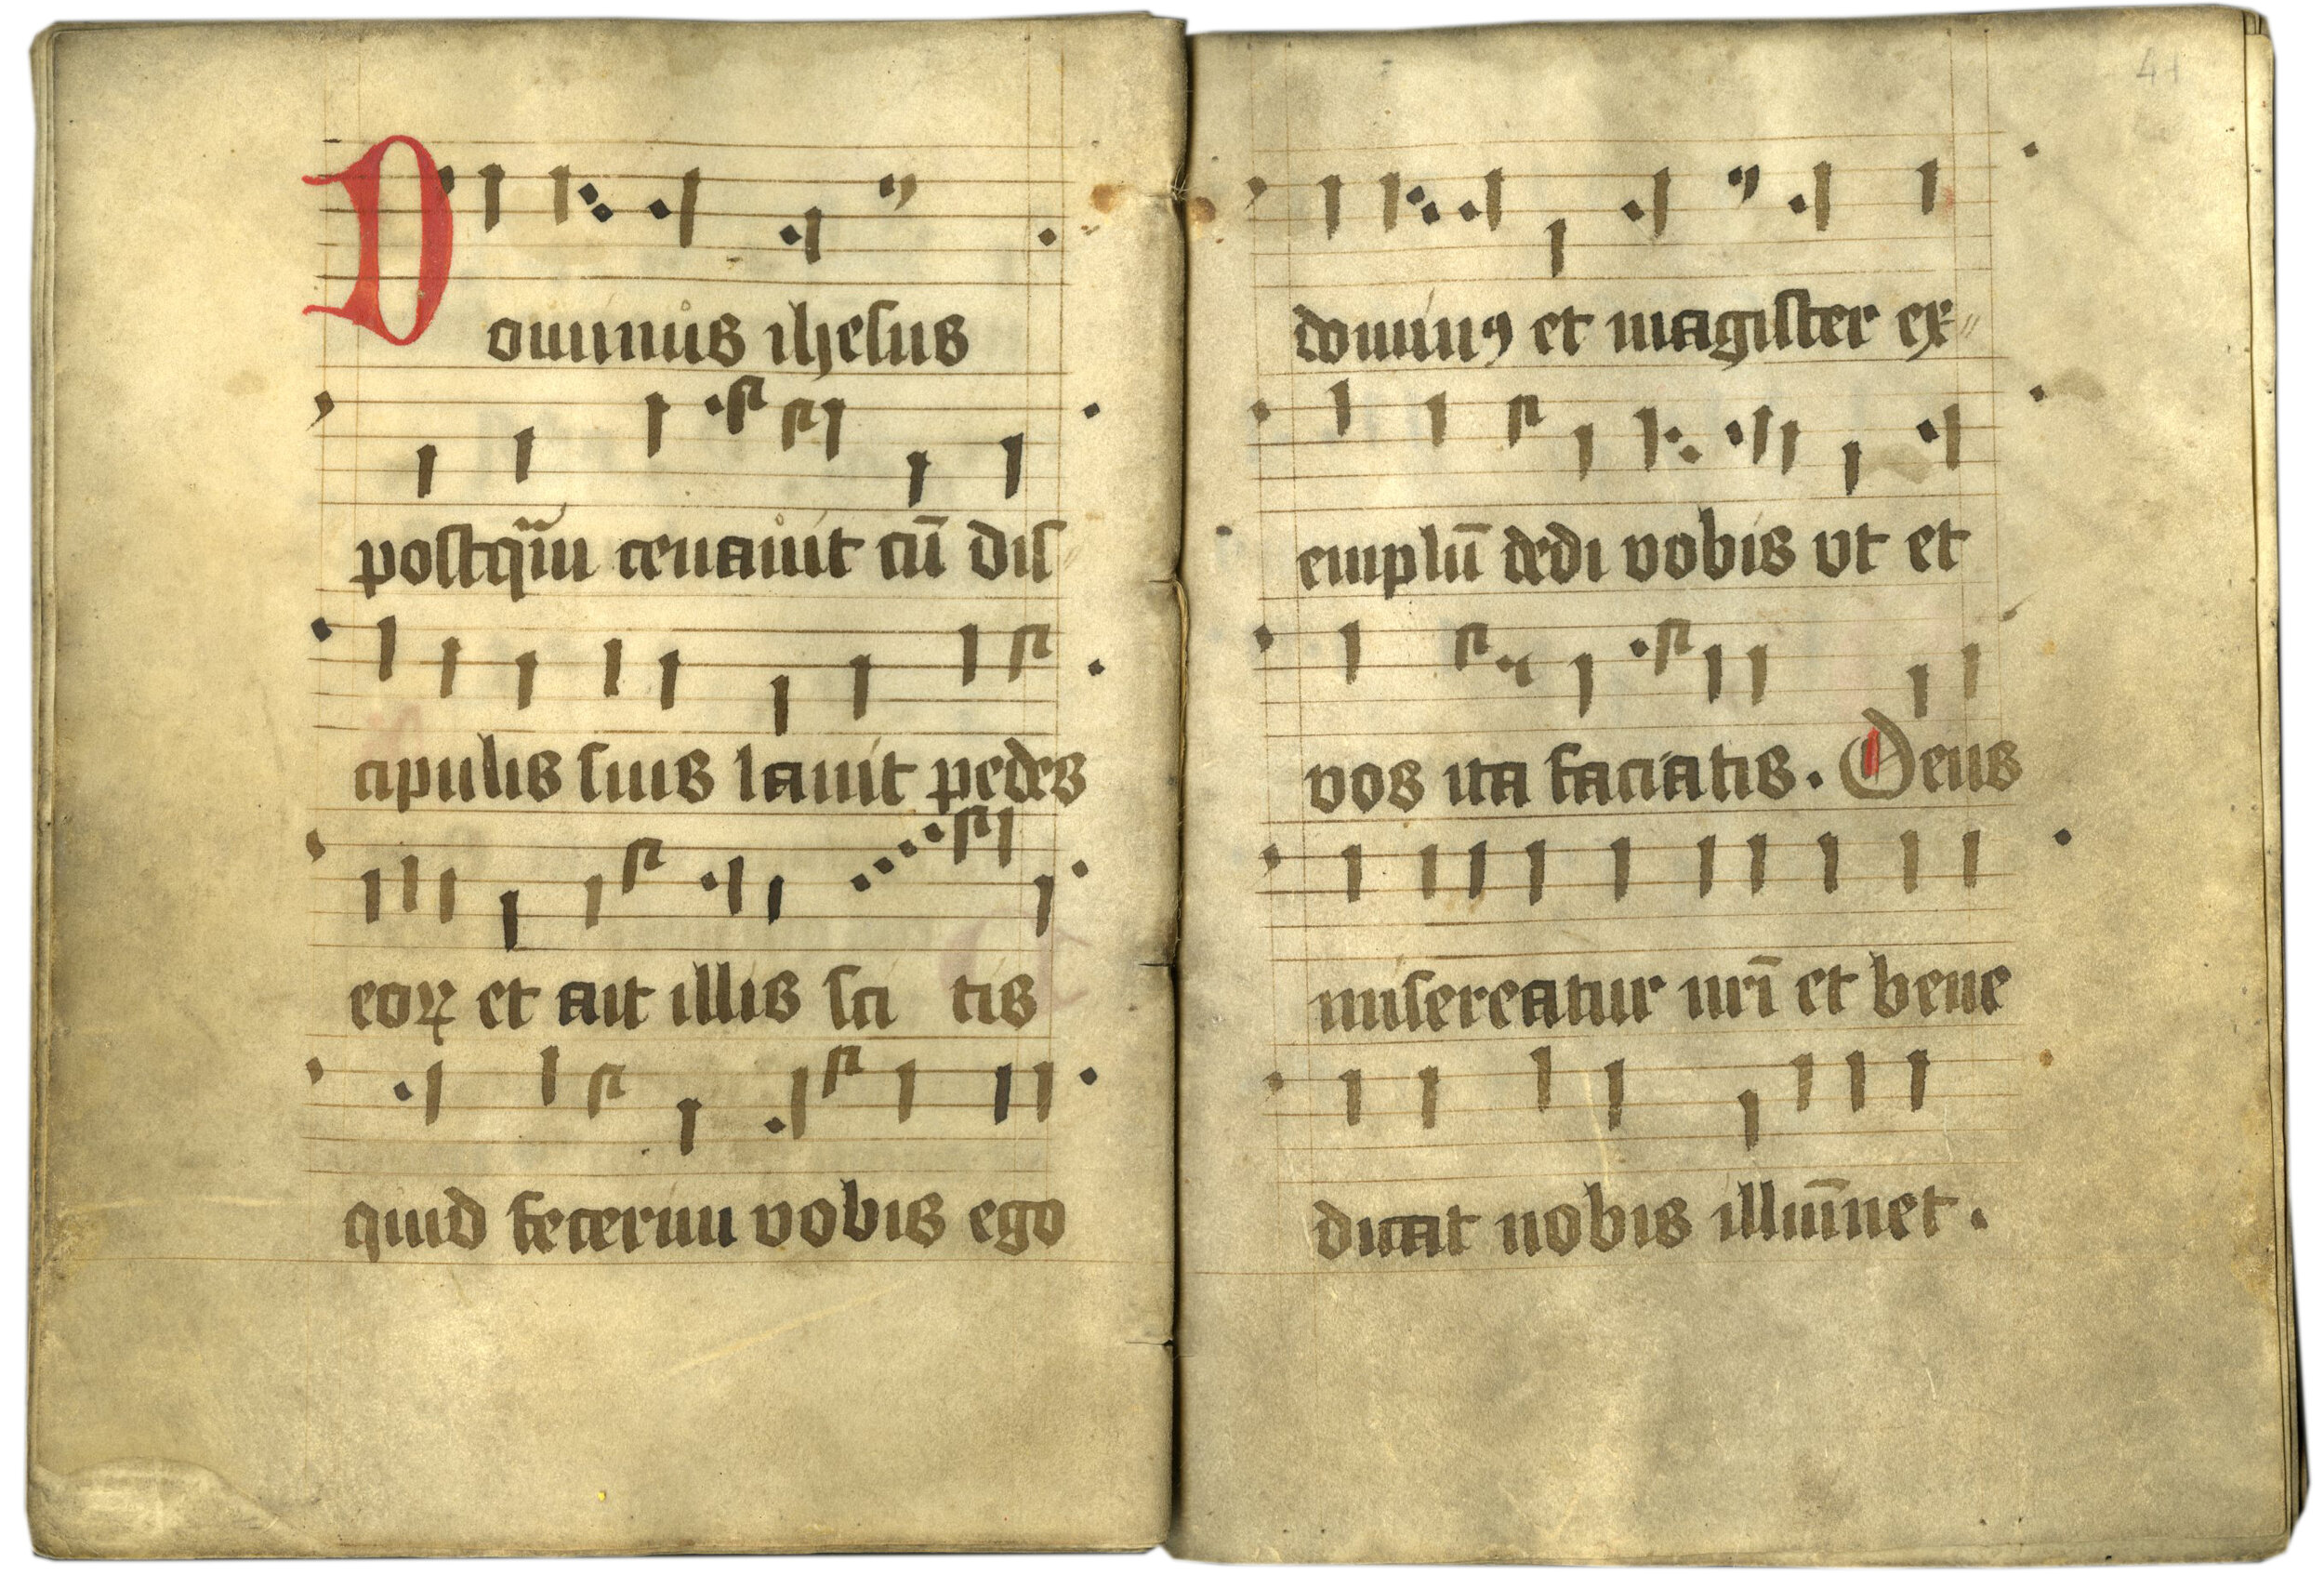 Dominus ihesus
postqͣm cenauit cū dis
cipulis suis lauit pedes
eoꝝ et ait illis sci tis
quid fecerim vobis ego
41
dominꝰ et magister ex
emplū dedi vobis vt et
vos ita faciatis. Deus
misereatur nr̄i et bene
dicat nobis illūinet.